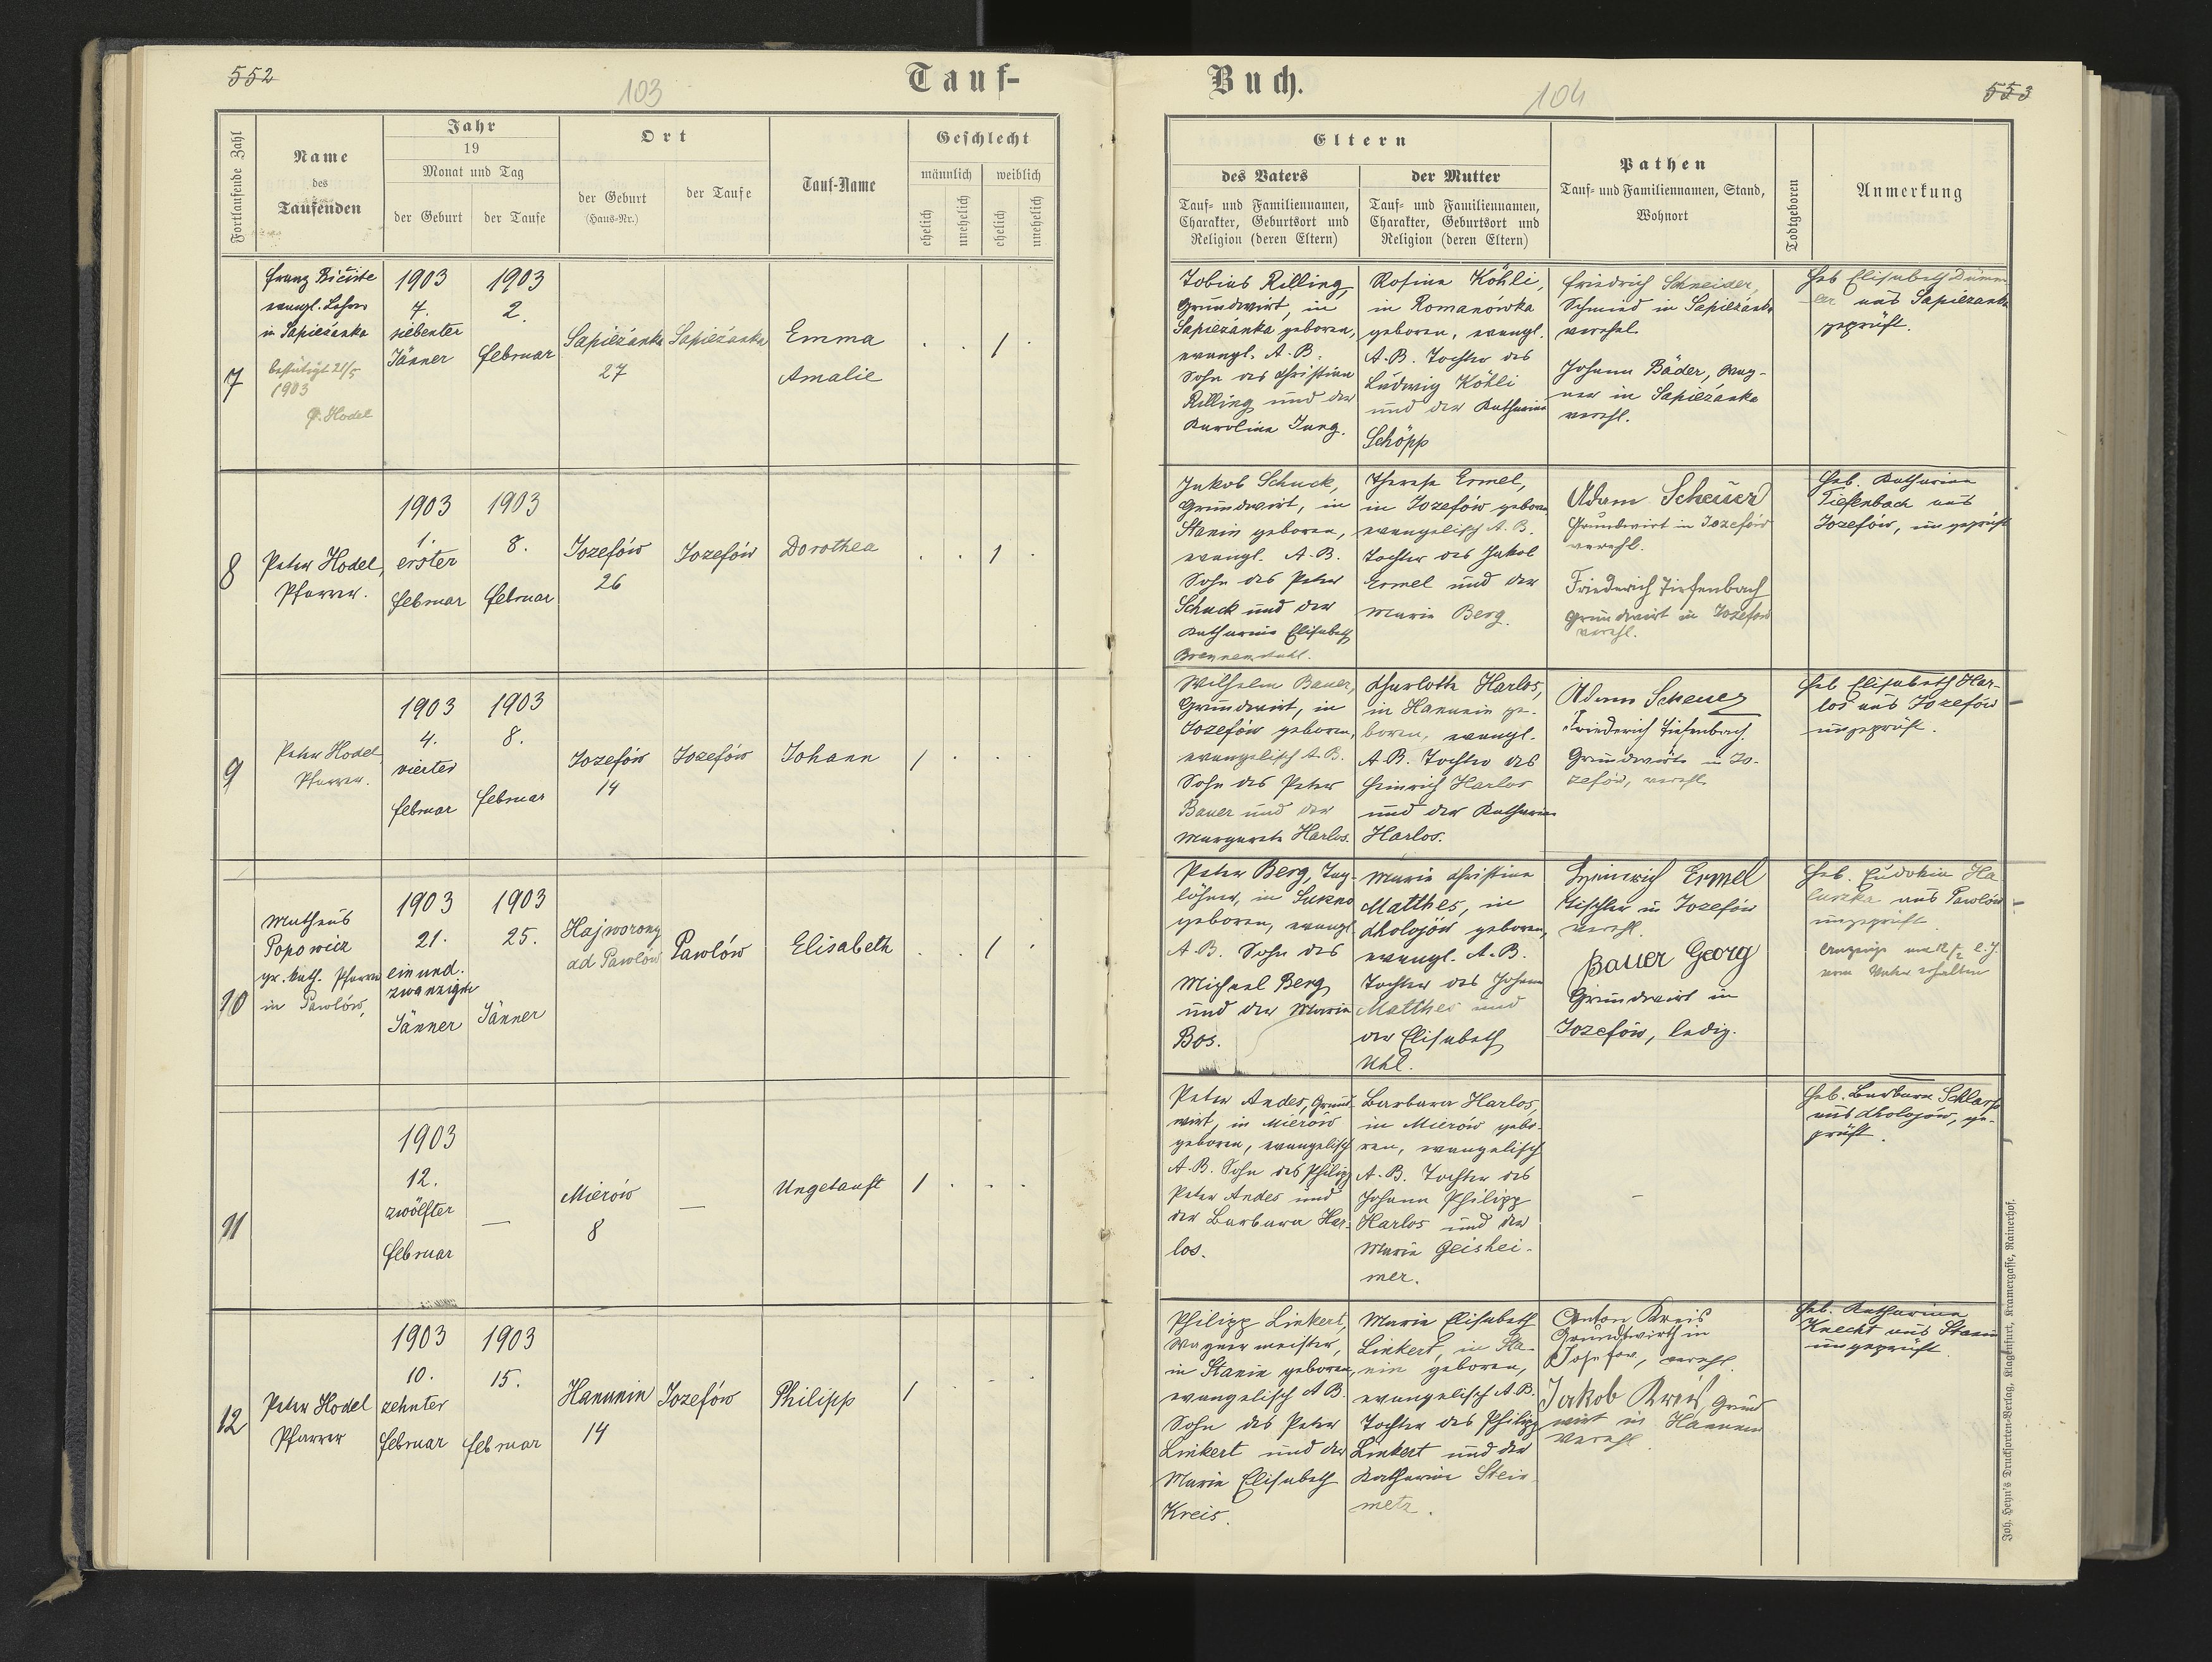 552
103
Tauf-
Fortlaufende Zahl
Name
des
Taufenden
Jahr
19
Monat und Tag
der Geburt
der Taufe
Ort
der Geburt
(Haus-Nr.)
der Taufe
Tauf-Name
Geschlecht
männlich
weiblich
ehelich
unehelich
ehelich
unehelich
7
Franz
evangl. Lehrer
in Sapieżanka
bestätigt 21/5
1903
P. Hodel
1903
7.
siebenter
Jänner
1903
2.
Februar
Sapieżanka
27
Sapieżanka
Emma
Amalie
. . 1 .
8
Peter Hodel,
Pfarrer.
1903
1.
erster
Februar
1903
8.
Februar
Jozefów
26
Jozefów
Dorothea
. . 1 .
9
Peter Hodel
Pfarrer.
1903
4.
vierter
Februar
1903
8.
Februar
Jozefów
14
Jozefów
Johann
1 . . .
10
Matheus
Popowicz
gr. kath. Pfarrer
in Pawlów,
1903
21.
einund-
zwanzigster
Jänner
1903
25.
Jänner
Hajworony
ad Pawlów
Pawlów
Elisabeth
. . 1 .
11
1903
12.
zwölfter
Februar
—
Mierów
8
—
Ungetauft
1 . . .
12
Peter Hodel
Pfarrer
1903
10.
zehnter
Februar
1903
15.
Februar
Hanunin
14
Jozefów
Philipp
1 . . .
Buch.
104
553
Eltern
des Vaters
Tauf- und Familiennamen,
Charakter, Geburtsort und
Religion (deren Eltern)
der Mutter
Tauf- und Familiennamen,
Charakter, Geburtsort und
Religion (deren Eltern)
Pathen
Tauf- und Familiennamen, Stand,
Wohnort
Todtgeboren
Anmerkung
Tobias Rilling,
Grundwirt, in
Sapiezanka geboren,
evangl. A. B.
Sohn des Christian
Rilling und der
Karolina Jung.
Rosina Köhli,
in Romanówka
geboren, evangl.
A. B. Tochter des
Ludwig Köhli
und der Katharina
Schöpp
Friedrich Schneider,
Schmied in Sapieżanka
verehel.
Johann Bäder, Wag-
ner in Sapieżanka
verehl.
Heb Elisabeth Dümm
ler aus Sapiezanka
geprüft.
Jakob Schuck,
Grundwirt, in
Stanin geboren,
evangl. A. B.
Sohn des Peter
Schuck und der
Katharina Elisabeth
Brennenstuhl.
Therese Ermel,
in Jozefów geboren
evangelisch A. B.
Tochter des Jakob
Ermel und der
Marie Berg.
Adam Scheuer
Grundwirt in Jozefów
verehl.
Friederich Tiefenbach
Grundwirt in Jozefow
verehl.
Heb. Katharina
Tiefenbach aus
Jozefów, ungeprüft
Wilhelm Bauer,
Grundwirt, in
Jozefów geboren,
evangelisch A. B.
Sohn des Peter
Bauer und der
Margareta Harlos.
Charlotte Harlos,
in Hanunin ge-
boren, evangl.
A. B. Tochter des
Heinrich Harlos
und der Katharina
Harlos.
Adam Scheuer
Friederich Tiefenbach.
Grundwirte in Jo-
zefów, verehl.
Heb Elisabeth Har-
los aus Jozefów
ungeprüft.
Peter Berg, Tag-
löhner, in Sukno
geboren, evangl.
A. B. Sohn des
Michael Berg
und der Maria
Bos.
Marie Christine
Matthes, in
Cholojów geboren,
evangl. A. B.
Tochter des Johann
Matthes und
der Elisabeth
Uhl.
Heinrich Ermel
Tischler in Jozefów
verehl.
Bauer Georg
Grundwirt in
Jozefów, ledig.
Heb. Eudokia Ha
luszka aus Pawlów
ungeprüft
vom Vater erhalten
Peter Andes, Grund-
wirt, in Mierów
geboren, evangelisch
A. B. Sohn des Philipp
Peter Andes und
der Barbara Har-
los.
Barbara Harlos,
in Mierów gebo-
ren, evangelisch
A. B. Tochter des
Johann Philipp
Harlos und der
Marie Geishei-
mer.
—
Heb. Barbara
aus Cholojów, ge-
prüft.
Philipp Linkert,
Wagnermeister,
in Stanin geboren,
evangelisch A B.
Sohn des Peter
Linkert und der
Marie Elisabeth
Kreis.
Marie Elisabeth
Linkert, in Sta-
nin geboren,
evangelisch A. B.
Tochter des Philipp
Linkert und der
Katharina Stein-
metz.
Anton Kreis
Grundwirth in
Josefow, verehl.
Jakob Kreis, Grund
wirt in Hanunin
verehl.
Heb. Katharina
Knecht aus Stanin
ungeprüft.
Joh. Heyn's Drucksorten-Verlag, Klagenfurt, Kramergasse, Rainerhof.